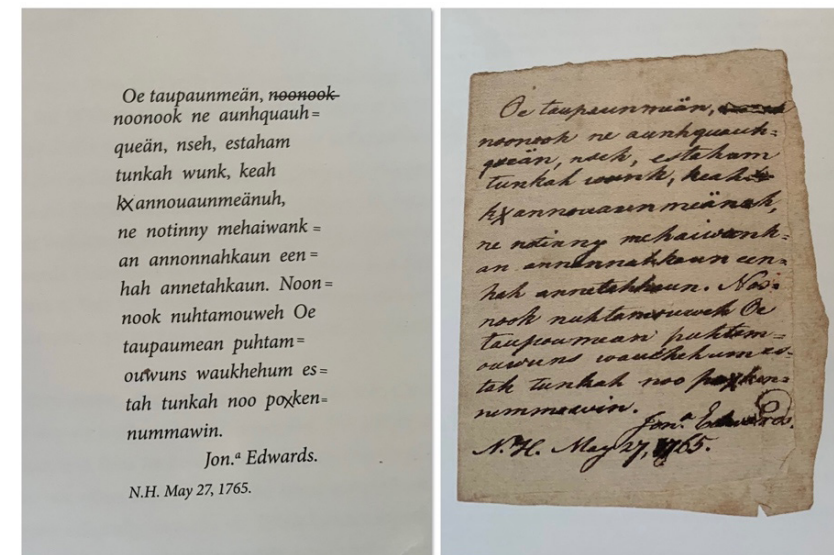 Oe taupaunmeän, noonook
noonook ne aunhquauh=
queän, nseh, estaham
tunkah wunk, keah
kχannouaunmeänuh,
ne notinny mehaiwank=
an annonnahkaun een=
hah annetahkaun. Noon=
nook nuhtamouweh Oe
taupaumean puhtam=
ouwuns waukhehum es=
tah tunkah noo poχken=
nummawin.
Jon.ª Edwards.
N.H. May 27, 1765.
Oe taupaunmeän,
noonook ne aunhquauh=
queän, nseh, estaham
tunkah wunk, keah
kχannouaunmeänuh,
ne notinny mehaiwank=
an annonnahkaun een=
hah annetahkaun. Noo=
nook nuhtamouweh Oe
taupaumean puhtam=
ouwuns waukhehum es=
tah tunkah noo poχken=
nummawin.
Jon.ª Edwards.
N.H. May 27, 1765.